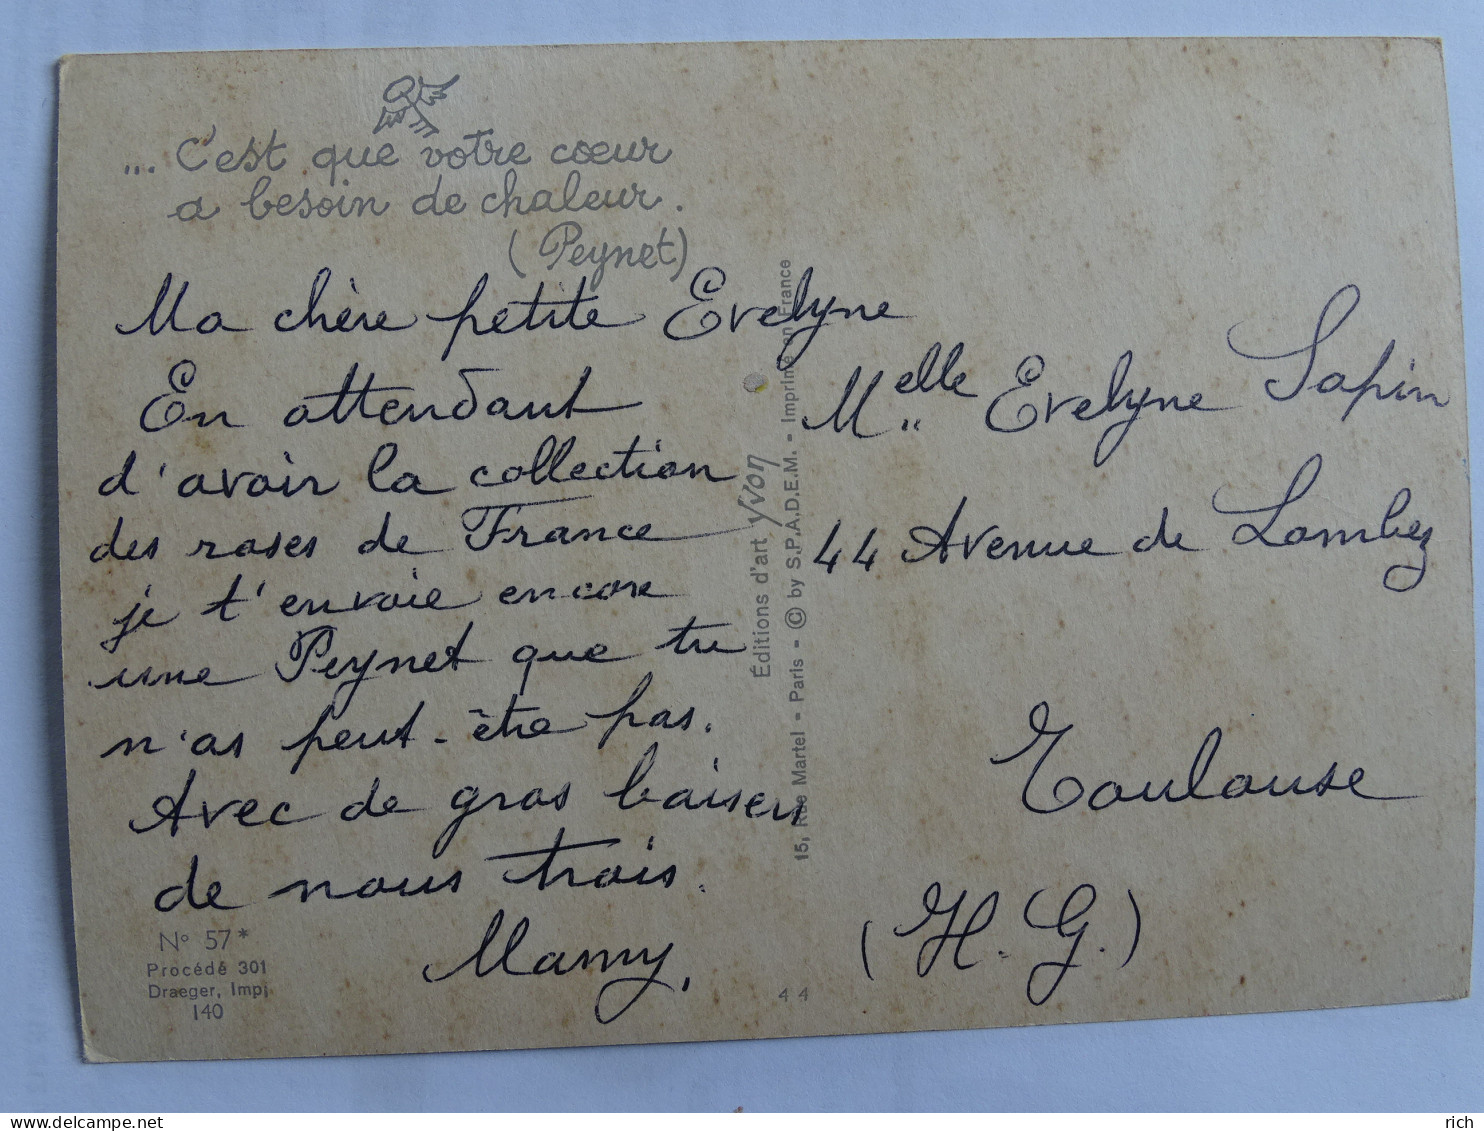 ... C'est que votre cœur
a besoin de chaleur.
(Peynet)
Ma chère petite Evelyne
En attendant
d'avoir la collection
des roses de France
je t'envoie encore
une Peynet que tu
n'as peut-être pas.
Avec de gros baisers
de nous trois.
Mamy.
N° 57*
Procédé 301
Draeger, Impr
140
Éditions d'art Yvon
15, Rue Martel - Paris - © by S.P.A.D.E.M. - Imprimé en France
44
Melle Evelyne Sapin
44 Avenue de Lombez
Toulouse
(H. G.)
delcampe.net
rich